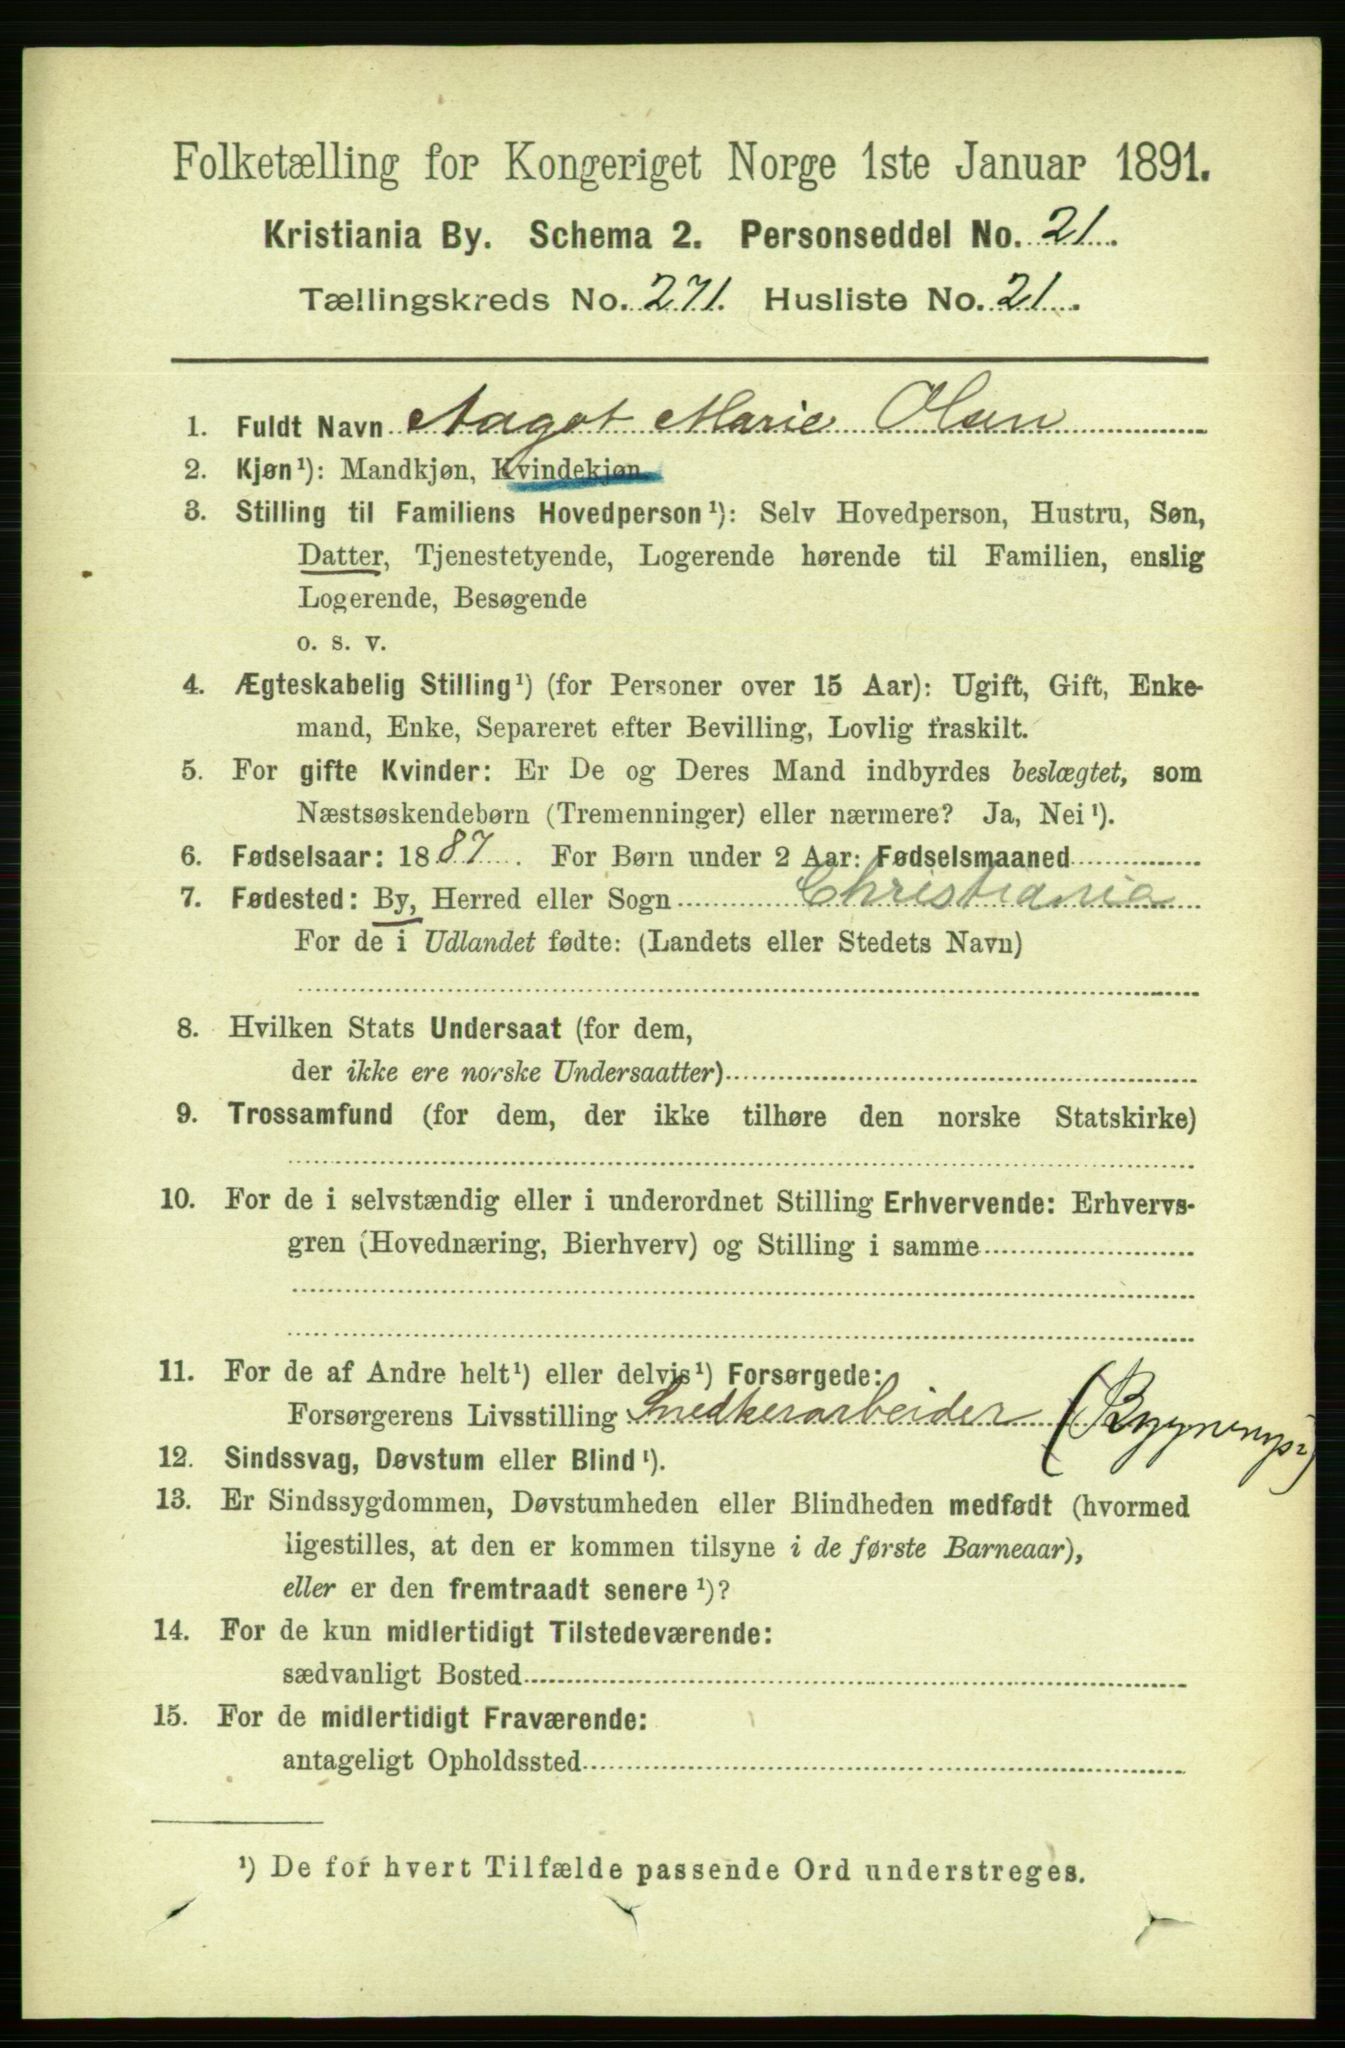 Folketælling for Kongeriget Norge 1ste Januar 1891.
Kristiania By. Schema 2. Personseddel No. 21.
Tællingskreds No. 271. Husliste No. 21.
1. Fuldt Navn Aagot Marie Olsen
2. Kjøn¹): Mandkjøn, Kvindekjøn.
3. Stilling til Familiens Hovedperson¹): Selv Hovedperson, Hustru, Søn,
Datter, Tjenestetyende, Logerende hørende til Familien, enslig
Logerende, Besøgende
o. s. v.
4. Ægteskabelig Stilling¹) (for Personer over 15 Aar): Ugift, Gift, Enke-
mand, Enke, Separeret efter Bevilling, Lovlig fraskilt.
5. For gifte Kvinder: Er De og Deres Mand indbyrdes beslægtet, som
Næstsøskendebørn (Tremenninger) eller nærmere? Ja, Nei¹).
6. Fødselsaar: 1887. For Børn under 2 Aar: Fødselsmaaned
7. Fødested: By, Herred eller Sogn Christiania
For de i Udlandet fødte: (Landets eller Stedets Navn)
8. Hvilken Stats Undersaat (for dem,
der ikke ere norske Undersaatter)
9. Trossamfund (for dem, der ikke tilhøre den norske Statskirke)
10. For de i selvstændig eller i underordnet Stilling Erhvervende: Erhvervs-
gren (Hovednæring, Bierhverv) og Stilling i samme
11. For de af Andre helt¹) eller delvis¹) Forsørgede:
Forsørgerens Livsstilling Snedkerarbeider
12. Sindssvag, Døvstum eller Blind¹).
13. Er Sindssygdommen, Døvstumheden eller Blindheden medfødt (hvormed
ligestilles, at den er kommen tilsyne i de første Barneaar),
eller er den fremtraadt senere¹)?
14. For de kun midlertidigt Tilstedeværende:
sædvanligt Bosted
15. For de midlertidigt Fraværende:
antageligt Opholdssted
¹) De for hvert Tilfælde passende Ord understreges.